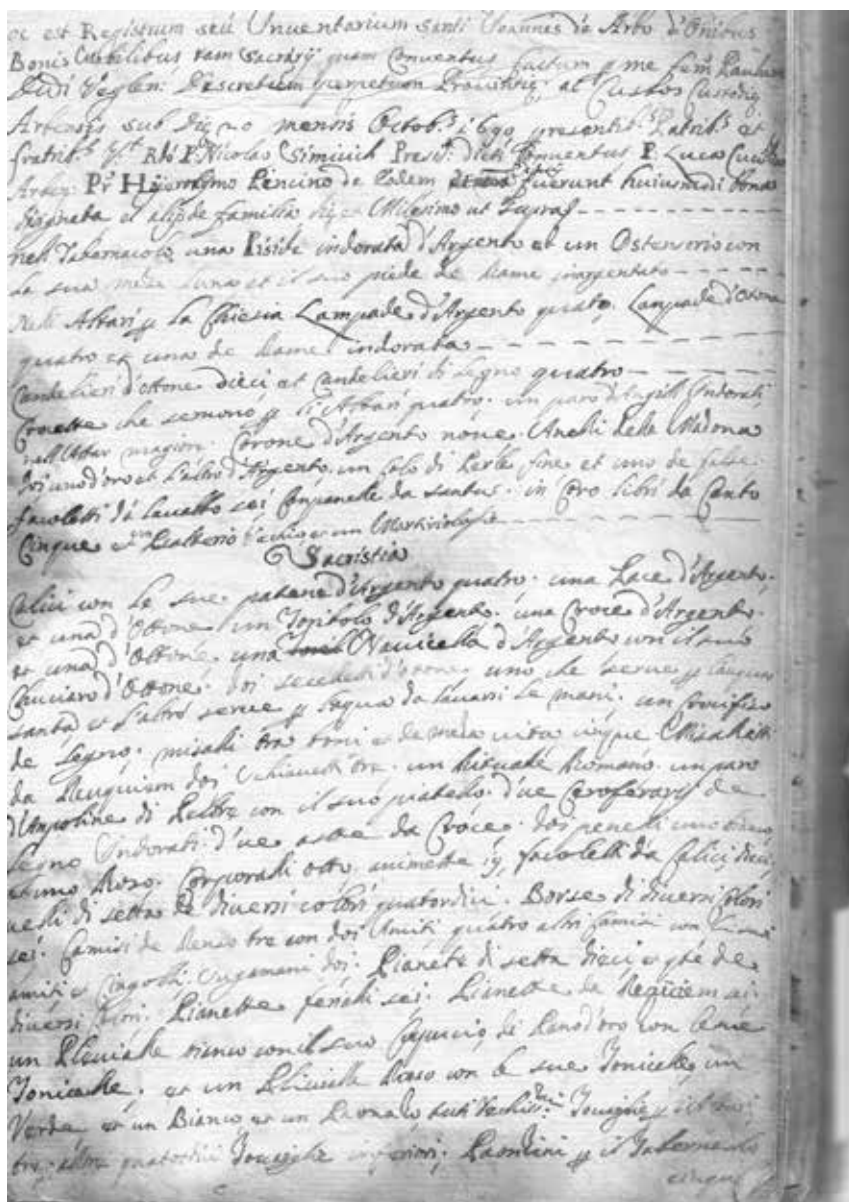 oc est Registrum seu Inventarium Santi Ioannis de Arbo d'Onibus
Bonis tam Sacrarij quam Conventus factum p me
Decretum perpetuum at Custos Custodię
Arbensis sub die 20 mensis Octob.s 1690 presentib.s Patrib.s et
fratrib.s Rdo P. Nicolao Simicich Presid: dicti Conventus P. Luca
Arben: Pr Hijeronymo Pencino de eodem fuerunt huiusmodi bona
disignata et de familia die et Milesimo ut supra
nell Tabernacolo una Piside indorata d'Argento et un Ostensorio con
la sua meza luna et il suo piede de Rame inargentato
Nelli Altari p la Chiesia Lampade d'Argento quatro. Lampade d'Otone
quatro et una de Rame indorata
Candelieri d'ottone dieci et Candelieri di legno quatro
che p li Altari quatro. un paro d'Angili Indorati
nell Altar magior. Corone d'Argento noue. Anelli della Madona
doi uno d'oro et l'altro d'Argento. un Colo di Perle fine et uno de false.
facoletti da lauabo sei Companelle da santus. in Coro libri da Canto
Cinque et un Psalterio uechio et un Martirologio
Sacristia
Calici con le sue patene d'Argento quatro. una Pace d'Argento.
et una d'Ottone. un Topibolo d'Argento. una Croce d'Argento.
et una d'Ottone. una Nauicella d'Argento con il suo
Cauciaro d'Ottone. doi sechieletti d'otone uno che serue p l'acqua
santa et l'altro serue p l'aqua da lauarsi le mani. un Crocifiso
de Legno. misali tra boni et de meza uita cinque. Misaletti
da Requiem doi tre. un Rituale Romano. un paro
d'Ampoline di Peltre con il suo piatelo. d'ue Ceroferarij de
legno Indorati. d'ue aste da Croce. doi penelli uno bianco
et uno Roso. Corporali otto. animette 19, facoletti da Calici dieci,
ueli di setta de diuersi colori quatordici. Borse di diuersi Colori
sei. Camisi de Renso tre con doi Amiti quatro altri Camisi con
amiti et Cingoli. sugamani doi. Pianete di setta dieci de
diuersi Colori. Pianette feriali sei. Pianette da Requiem sei
un Pluuiale bianco con il suo Capucio di Panod'oro con le sue
Tonicelle. et un Pluuiale Roso con le sue Tonicelle, un
Verde et un Bianco et un Paonazo tuti Vechi. Touaglie p
tre, altre quatordici Touaglie inferiori. p il Tabernacolo
cinque